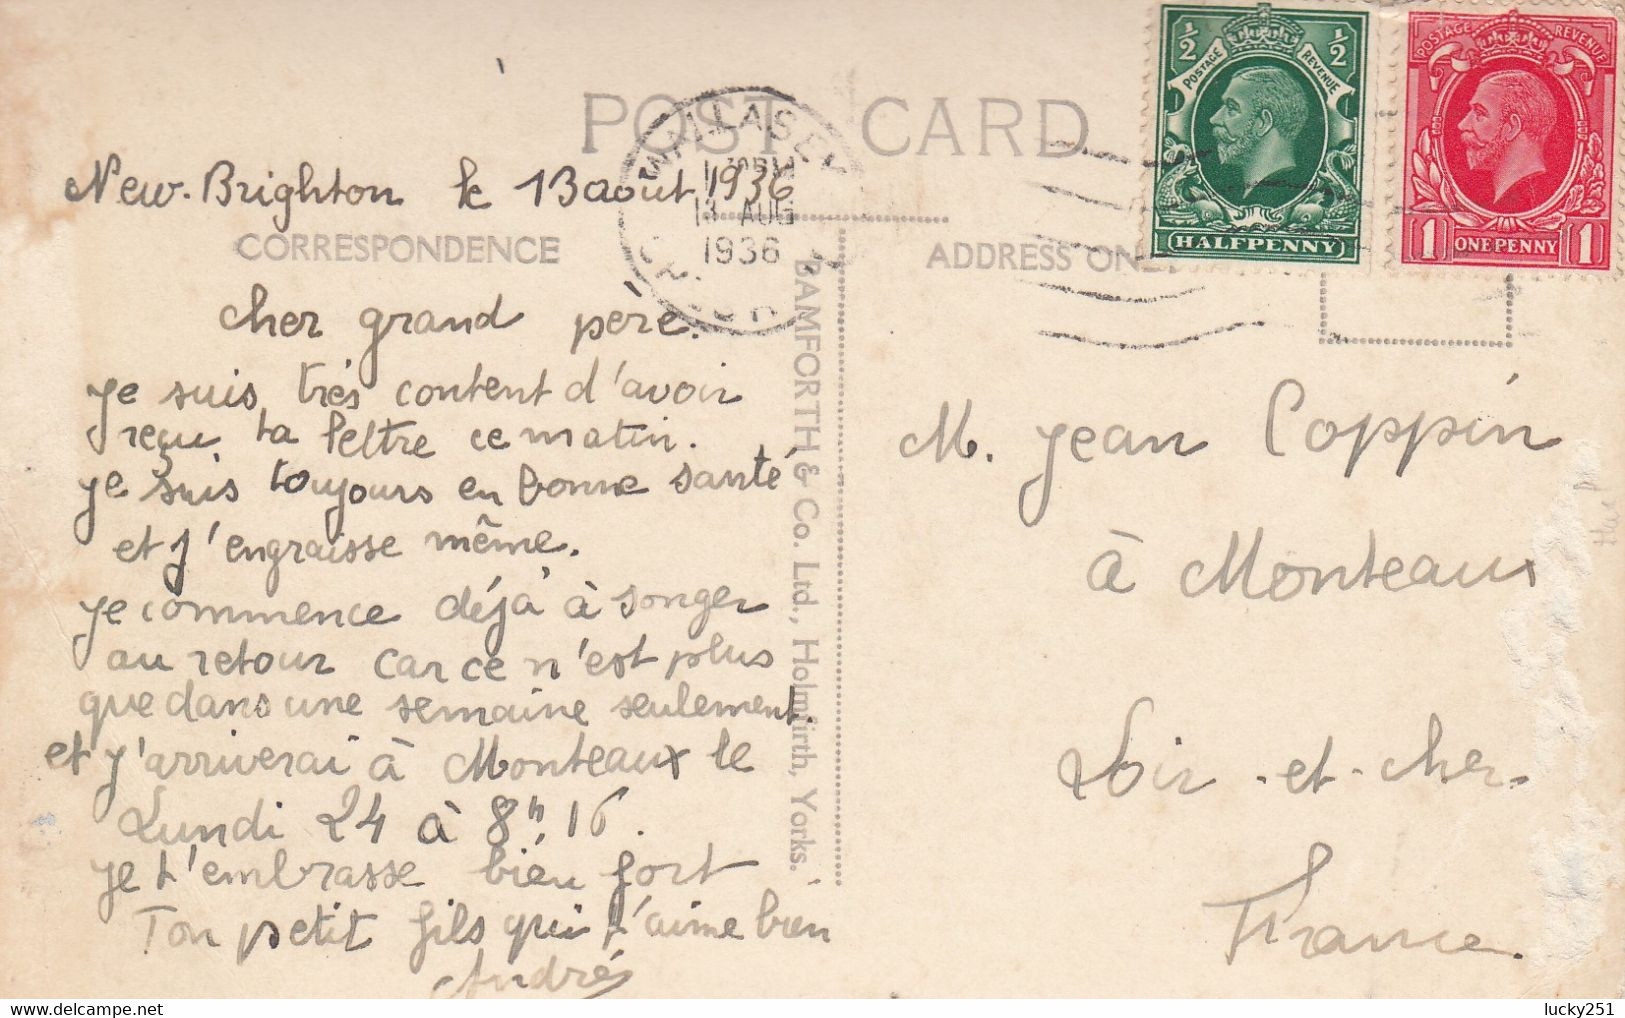 POST CARD
½ ½
POSTAGE REVENUE
HALFPENNY
POSTAGE REVENUE
1 ONE PENNY 1
WALLASEY
AUG
1936
New-Brighton le 13 août 1936
CORRESPONDENCE
ADDRESS ON
cher grand père.
je suis très content d'avoir
reçu ta lettre ce matin.
je suis toujours en bonne santé
et j'engraisse même.
je commence déjà à songer
au retour car ce n'est plus
que dans une semaine seulement
et j'arriverai à Monteaux le
Lundi 24 à 8h,16.
je t'embrasse bien fort
Ton petit fils qui t'aime bien
André
BAMFORTH & Co. Ltd., Holmfirth, Yorks.
M. Jean Coppin
à Monteaux
Loir-et-cher.
France.
lucky251